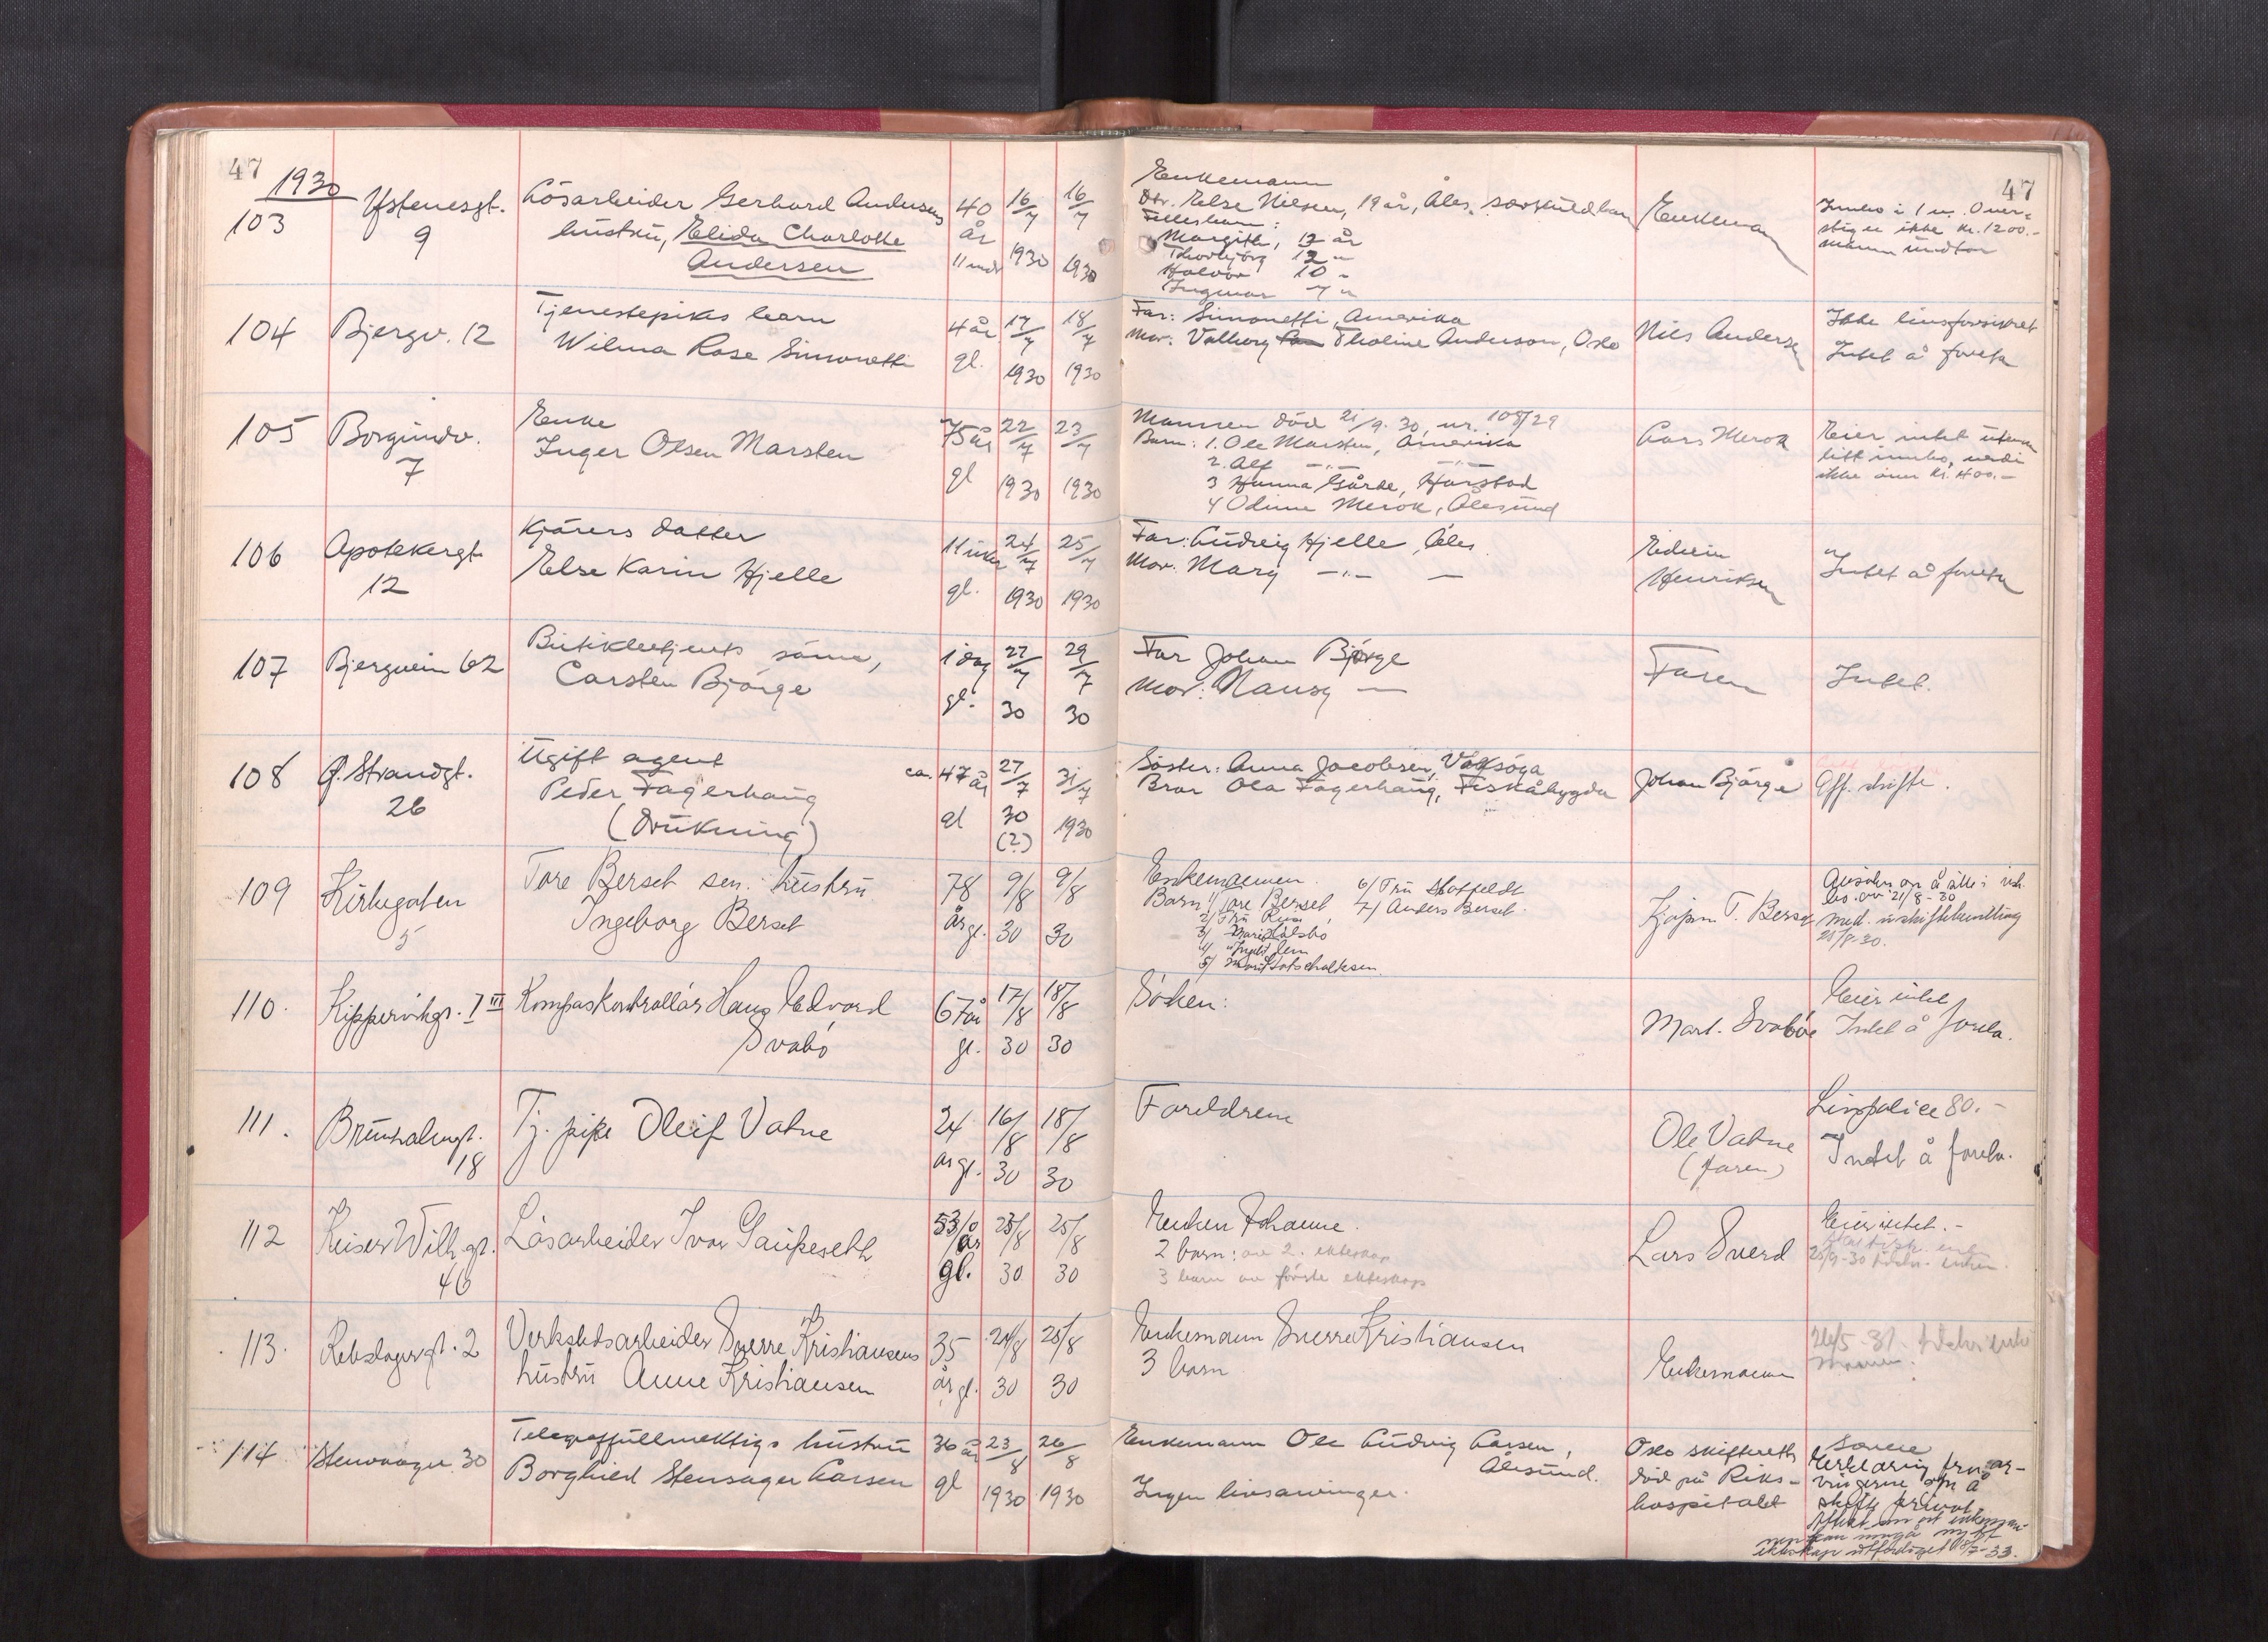 47
47
1930
103
Ystenesgt.
9
Lösarbeider Gerhard Andersens
hustru, Elida Charlotte
Andersen
40
år
11 mdr
16/7
1930
16/7
1930
Enkemann
Dtr. Else Nilsen, 19 år, Åles. særkuldbarn
Fellesbarn:
Margith, 13 år
Thorbjörg 12 "
Halvor 10 "
Ingvar 7 "
Enkeman
Innbo i 1 v. Over-
stiger ikke kr. 1200.-
104
Bjergv. 12
Tjenestepikes barn
Wilma Rose Simonetti
4 år
gl.
17/7
1930
18/7
1930
Far: Simonetti, Amerika
Mor: Valborg Tholine Anderson, Oslo
Nils Andersen
Ikke livsforsikret
Intet å foreta
105
Borgundv.
7
Enke
Inger Olsen Marsten
75 år
gl
22/7
1930
23/7
1930
Mannen död 21/9.30, nr. 108/29
Barn: 1. Ole Marsten, Amerika
2. Alf -"- -"-
3 Hanna Gårde, Harstad
4 Odine Merok, Ålesund
Lars Merok
Eier intet utenom
litt innbo, verdi
ikke over kr. 400.-
106
Apotekergt.
12
Kjörers datter
Else Karin Hjelle
11 uker
gl.
24/7
1930
25/7
1930
Far: Ludvig Hjelle, Åles.
Mor. Mary -"- -
Edvin
Henriksen
Intet å foreta
107
Bjergveien 62
Butikbetjents sönn,
Carsten Björge
1 dag
gl.
27/7
30
29/7
30
Far Johan Björge
Mor: Nansy -
Faren
Intet.
108
Ø. Strandgt.
26
Ugift agent
Peder Fagerhaug
(drukning)
ca. 47 år
gl
27/7
30
(?)
31/7
1930
Söster: Anna Jacobsen, Vågsöya
Bror Ola Fagerhaug, Fiskåbygda
Johan Björge
Off. skifte.
109
Kirkegaten
5
Tore Berset sen. hustru
Ingeborg Berset
78
år gl.
9/8
30
9/8
30
Enkemannen
Barn: 1/ Tore Berset
2/ Fru
3/
4/
5/
6/ Fru Hatfeldt
7/ Anders Berset.
Kjöpm. T. Berset
21/8-30
21/8-30.
110.
Kippervikgt. 7 III
Kompaskontrollör Hans Edvard
Svabö
67 år
gl.
17/8
30
18/8
30
Sösken:
Mart. Svaböe
Eier intet
Intet å foreta.
111.
Brunholmgt.
18
Tj. pike Oleif Vatne
24
år gl.
16/8
30
18/8
30
Foreldrene
Ole Vatne
(faren)
Livspolice 80.-
Intet å foreta.
112
Keiser Wilh. gt.
46
Lösarbeider Ivar Gaupeseth
53 år
gl.
23/8
30
25/8
30
Enken Johanne.
2 barn: av 2. ekteskap
3 barn av förste ekteskap
Lars Sverd
Eier intet.-
113.
Rebslagergt. 2
Verkstedsarbeider Sverre Kristiansens
hustru Anne Kristiansen
35
år gl.
24/8
30
25/8
30
Enkemann Sverre Kristiansen
3 barn
Enkemann
114
Stenvaagen 30
Telegraffullmektigs hustru
Borghild Stensager Larsen
36 år
gl
23/8
1930
26/8
1930
Enkemann Ole Ludvig Larsen,
Ålesund.
Ingen livsarvinger.
Oslo skifterett
död på Riks-
hospitalet
Erklæring fra ar-
vingerne om å
skifte privat.
ekteskap utferdiget 18/7-33.